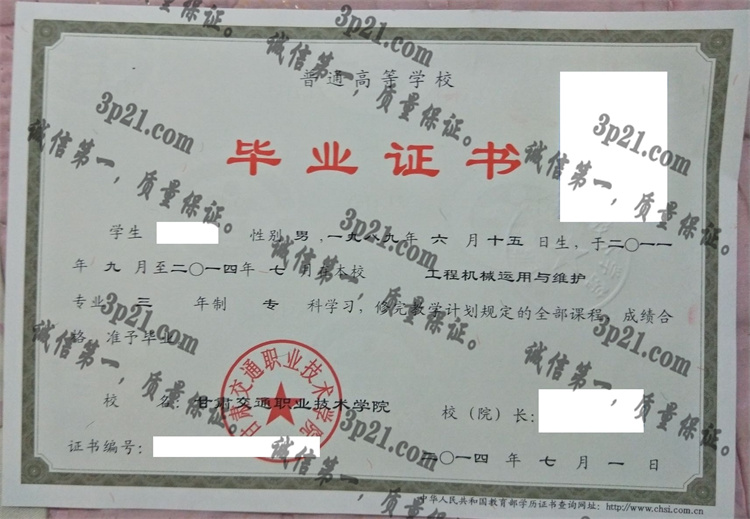 普通高等学校
毕业证书
学生 性别 男 ,一九八九年 六 月 十五 日生, 于二〇一一
年 九 月至二〇一四年 七 月在本校 工程机械运用与维护
专业 三 年制 专 科学习, 修完教学计划规定的全部课程, 成绩合
格, 准予毕业
校 名: 甘肃交通职业技术学院 校（院）长:
证书编号: 二〇一四 年 七 月 一 日
中华人民共和国教育部学历证书查询网址: http://www.chsi.com.cn
甘肃交通职业技术学院
3p21.com
诚信第一，质量保证。
3p21.com
诚信第一，质量保证。
3p21.com
诚信第一，质量保证。
3p21.com
诚信第一，质量保证。
3p21.com
诚信第一，质量保证。
3p21.com
诚信第一，质量保证。
3p21.com
诚信第一，
3p21.com
诚信第一，
质量保证。